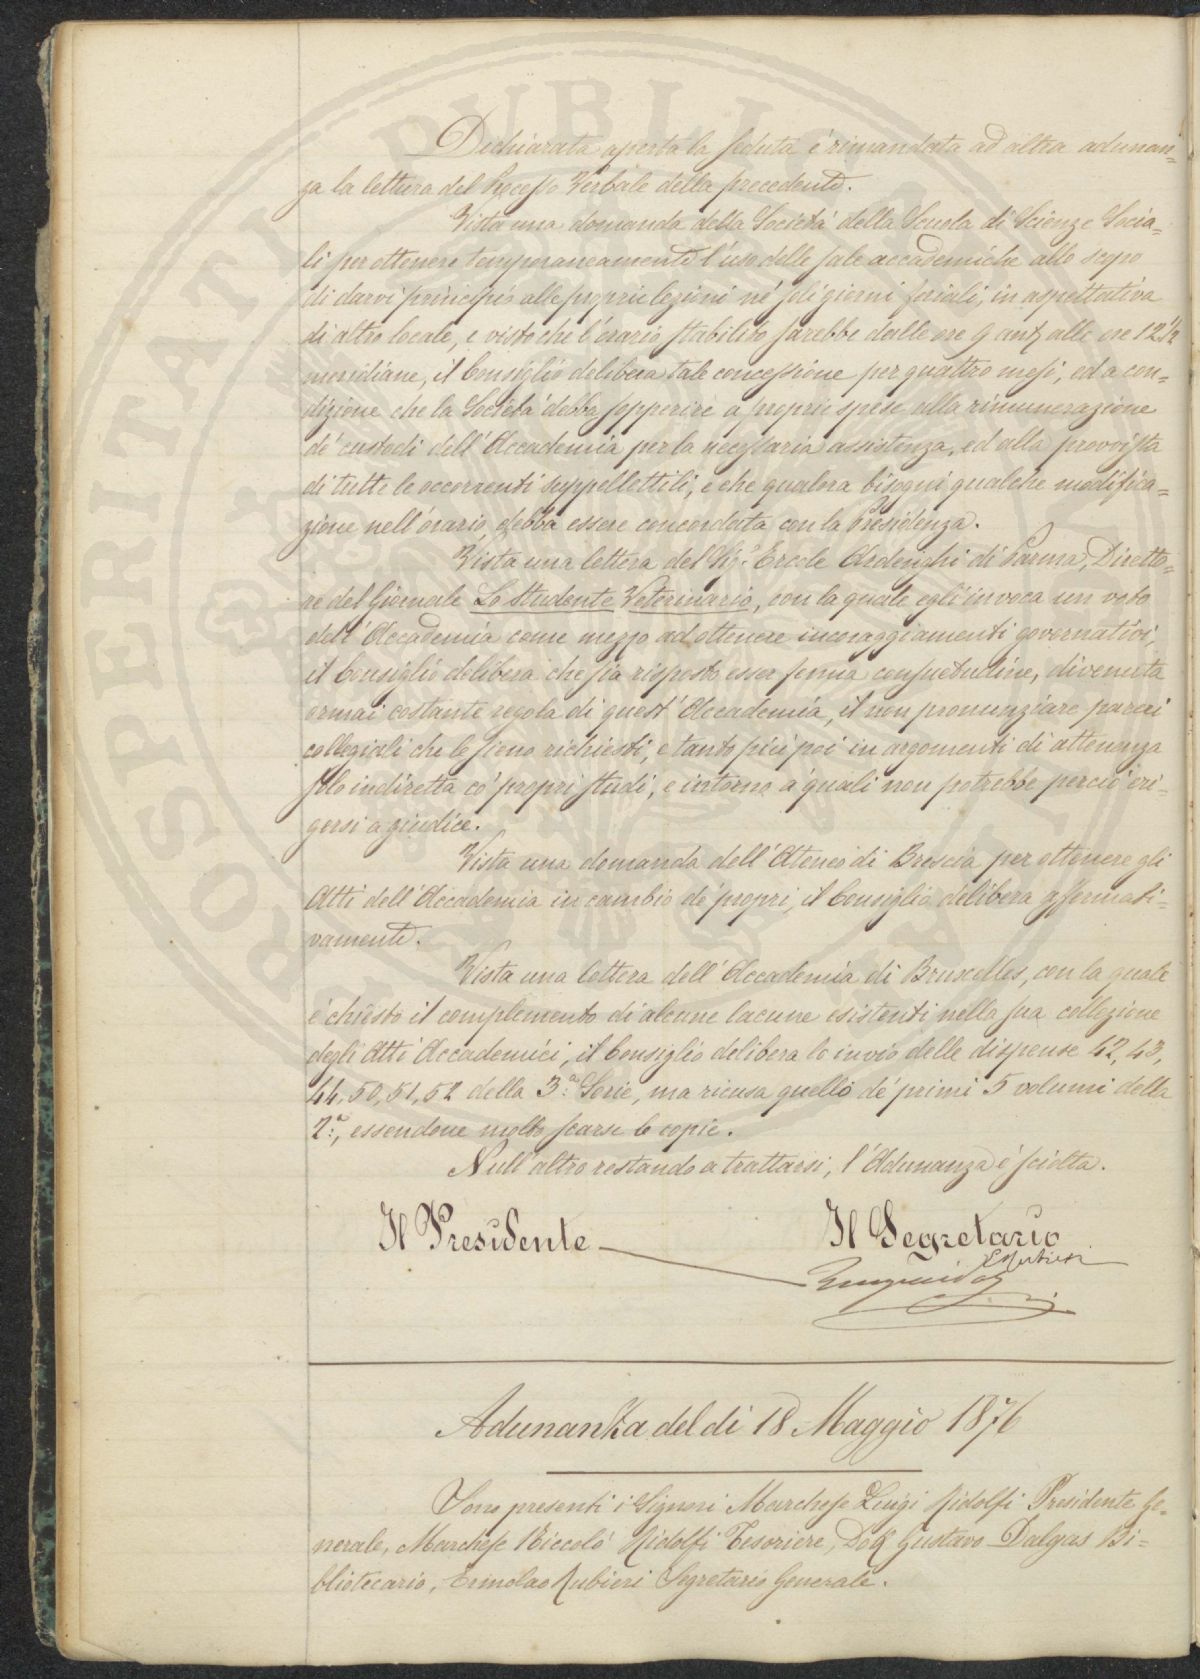 Dichiarata aperta la seduta è rimandata ad altra adunan=
za la lettura del Processo Verbale della precedente.
Vista una domanda della Società della Scuola di Scienze Socia=
li per ottenere temporaneamente l'uso delle sale accademiche allo scopo
di darvi principio alle proprie lezioni ne' soli giorni feriali, in aspettativa
di altro locale, e visto che l'orario stabilito sarebbe dalle ore 9 ant alle ore 12½
meridiane, il Consiglio delibera tale concessione per quattro mesi, ed a con=
dizione che la Società debba sopperire a proprie spese alla rimunerazione
de' custodi dell'Accademia per la necessaria assistenza, ed alla provvista
di tutte le occorrenti suppellettili, e che qualora bisogni qualche modifica=
zione nell'orario, debba essere concordata con la Presidenza.
Vista una lettera del Sigr. Ercole Ardenghi di Parma, Diretto=
re del Giornale Lo Studente Veterinario, con la quale egli invoca un voto
dell'Accademia come mezzo ad ottenere incoraggiamenti governativi,
il Consiglio delibera che sia risposto esser ferma consuetudine, divenuta
ormai costante regola di quest'Accademia, il non pronunziare pareri
collegiali che le sieno richiesti, e tanto più poi in argomenti di attenenza
solo indiretta co' propri studi, e intorno a' quali non potrebbe perciò eri=
gersi a giudice.
Vista una domanda dell'Ateneo di Brescia per ottenere gli
Atti dell'Accademia in cambio de' propri, il Consiglio delibera affermati=
vamente.
Vista una lettera dell'Accademia di Bruxelles, con la quale
è chiesto il complemento di alcune lacune esistenti nella sua collezione
degli Atti Accademici, il Consiglio delibera lo invio delle dispense 42, 43,
44, 50, 51, 52 della 3.ª Serie, ma ricusa quello de' primi 5 volumi della
2.ª, essendone molto scarse le copie.
Null'altro restando a trattarsi, l'Adunanza è sciolta.
Il Presidente
Il Segretario
E Rubieri
Adunanza del dì 18 Maggio 1876
Sono presenti i Signori Marchese Luigi Ridolfi Presidente Ge=
nerale, Marchese Niccolò Ridolfi Tesoriere, Dott Gustavo Dalgas Bi=
bliotecario, Ermolao Rubieri Segretario Generale.
PROSPERITATI PUBLICAE